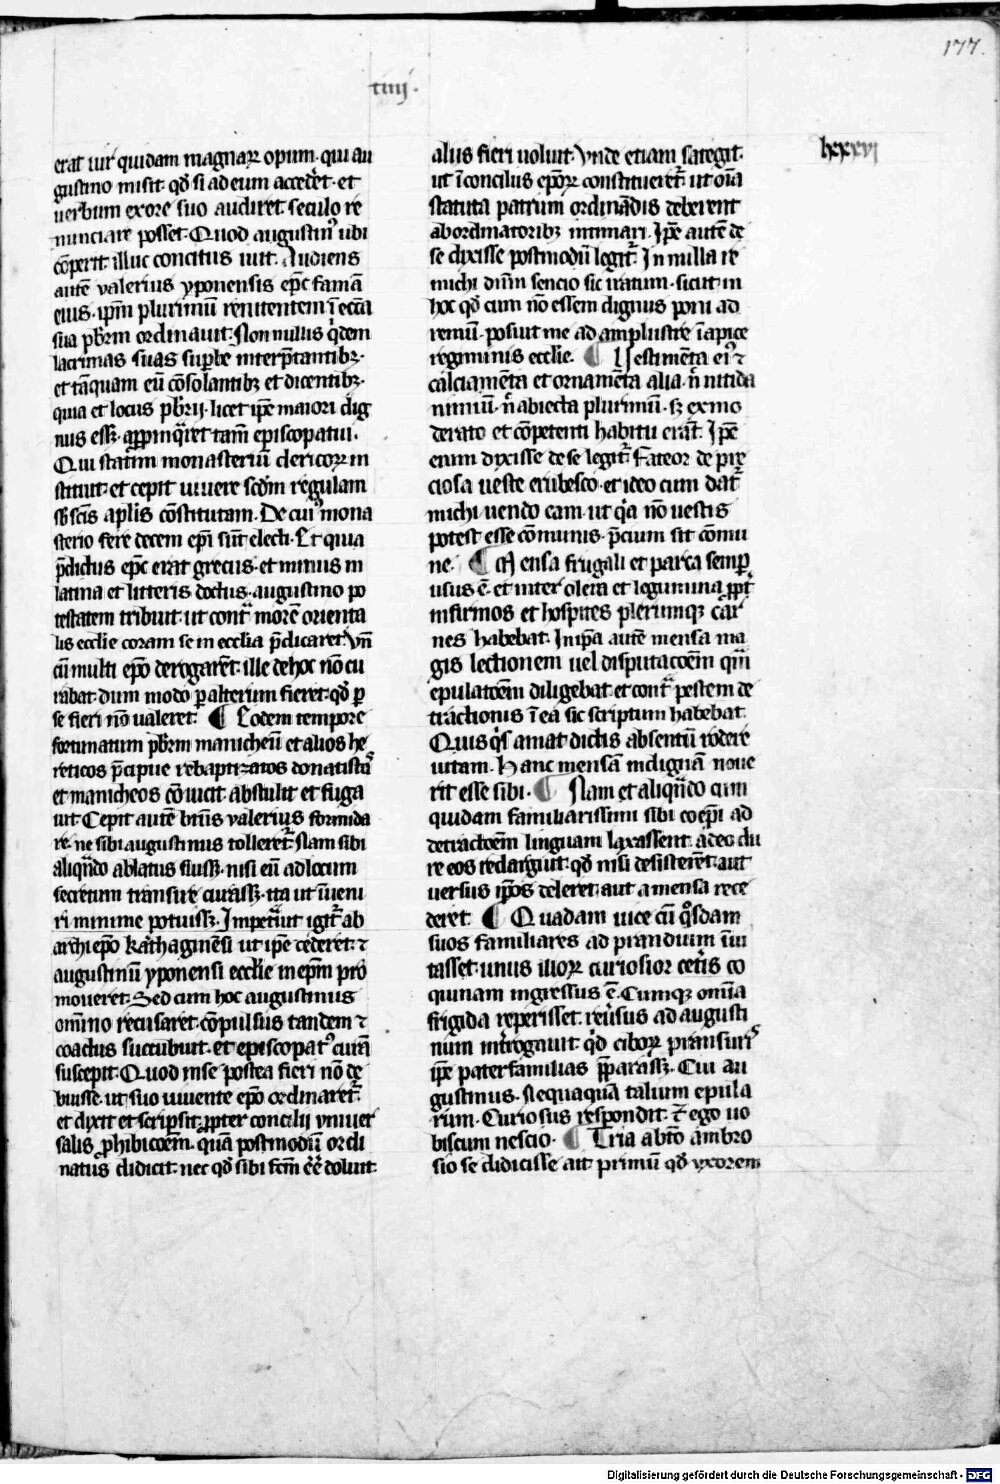 177.
iiij.
lxxxvi
erat uir quidam magnaꝝ opum. qui au
gustino misit. qd̓ si ad eum accedēt. et
uerbum ex ore suo audiret. seculo re
nunciare posset. Quod augustinꝰ ubi
cōperit. illuc concitus iuit. Audiens
autē valerius yponensis ep̄c famā
eius. ip̄m plurimū renitentem ī ecc̄a
sua pb̄rm ordinauit. Non nullis qͥdem
lacrimas suas supbe interp̄tantibꝫ.
et tāquam eū cōsolantibꝫ et dicentibꝫ.
quia et locus pb̄rij. licet ip̄e maiori dig
nus esꝫ. apppinq̄ret tam̄ episcopatui.
Qui statim monasteriū clericoꝝ in
stituit. et cepit uiuere scd̄m regulam
sb̓ scīs apl̄is cōstitutam. De cuiꝰ mona
sterio fere decem ep̄i sūt electi. Et quia
p̄dictus ep̄c erat grecus. et minus in
latina et litteris doctus. augustino po
testatem tribuit. ut contͣ morē orienta
lis ecclīe coram se in ecclīa p̄dicaret. Vn̄
cū multi ep̄o derogarēt. ille de hoc nō cu
rabat. dum modo p alterum fieret. qd̓ p
se fieri nō ualeret. ¶ Eodem tempore
fortunatum pb̄rm manicheū et alios he
reticos p̄cipue rebaptizatos donatistaꝫ
et manicheos cōuicit abstulit et fuga
uit. Cepit autē br̄us valerius formida
re. ne sibi augustinus tolleret̄. Nam sibi
aliqn̄do ablatus fuisꝫ. nisi eū ad locum
secretum transire curasꝫ. ita ut īueni
ri minime potuisꝫ. Impetͣuit igit̄ ab
archiep̄o karthaginēsi ut ip̄e cederet. ⁊
augustinū yponensi ecclīe in ep̄m pro
moueret. Sed cum hoc augustinus
omīno recusaret. cōpulsus tandem ⁊
coactus succubuit. et episcopatꝰ curā
suscepit. Quod in se postea fieri nō de
buisse. ut suo uiuente ep̄o ordinaret̄.
et dixit et scripsit. ppter concilij vniuer
salis phibicōem. quā postmodū ordi
natus didicit. nec qd̓ sibi fcm̄ eē doluit.
alijs fieri uoluit. Vnde etiam sategit.
ut ī concilijs ep̄oꝝ constitueret̄. ut oīa
statuta patrum ordinādis deberent
ab ordinatoribꝫ intimari. Ip̄e autē de
se dixisse postmodū legit̄. In nulla re
michi dnm̄ sencio sic iratum. sicut in
hoc qd̓ cum nō essem dignus poni ad
remū. posuit me ad amplustre ī apice
regiminis ecclīe. ¶ Vestimēta eiꝰ ⁊
calciamēta et ornamēta alia. n̄ nitida
nimiū. n̄ abiecta plurimū. sꝫ ex mo
derato et cōpetenti habitu erāt. Ip̄e
enim dixisse de se legit̄. Fateor de pre
ciosa ueste erubesco. et ideo cum dat̄
michi uendo eam. ut qͣa nō uestis
potest esse cōmunis. p̄cium sit cōmu
ne. ¶ Mensa frugali et parca semp
usus ē. et inter olera et legumina ppt̄
infirmos et hospites plerumqꝫ car
nes habebat. In ip̄a autē mensa ma
gis lectionem uel disputacōem qͣm
epulatōem diligebat. et contͣ pestem de
tractionis ī ea sic scriptum habebat.
Quis qͥs amat dictis absentū rodere
uitam. Hanc mensā indignā noue
rit esse sibi. ¶ Nam et aliqn̄do cum
quidam familiarissimi sibi coep̄i ad
detractōem linguam laxassent. adeo du
re eos redarguit. qd̓ nisi desisterēt. aut
uersus ip̄os deleret. aut a mensa rece
deret. ¶ Quadam uice cū qͦsdam
suos familiares ad prandium īui
tasset. unus illoꝝ curiosior cet̄is co
quinam ingressus ē. Cumqꝫ omīa
frigida reperisset. reūsus ad augusti
num int̄rogauit. qͥd ciboꝝ pransuris
ip̄e paterfamilias pparasꝫ. Cui au
gustinus. Nequaquā talium epula
rum. Curiosus respondit. ⁊ ego uo
biscum nescio. ¶ Tria ab bt̄o ambro
sio se didicisse ait. primū qd̓ vxorem
Digitalisierung gefördert durch die Deutsche Forschungsgemeinschaft - DFG